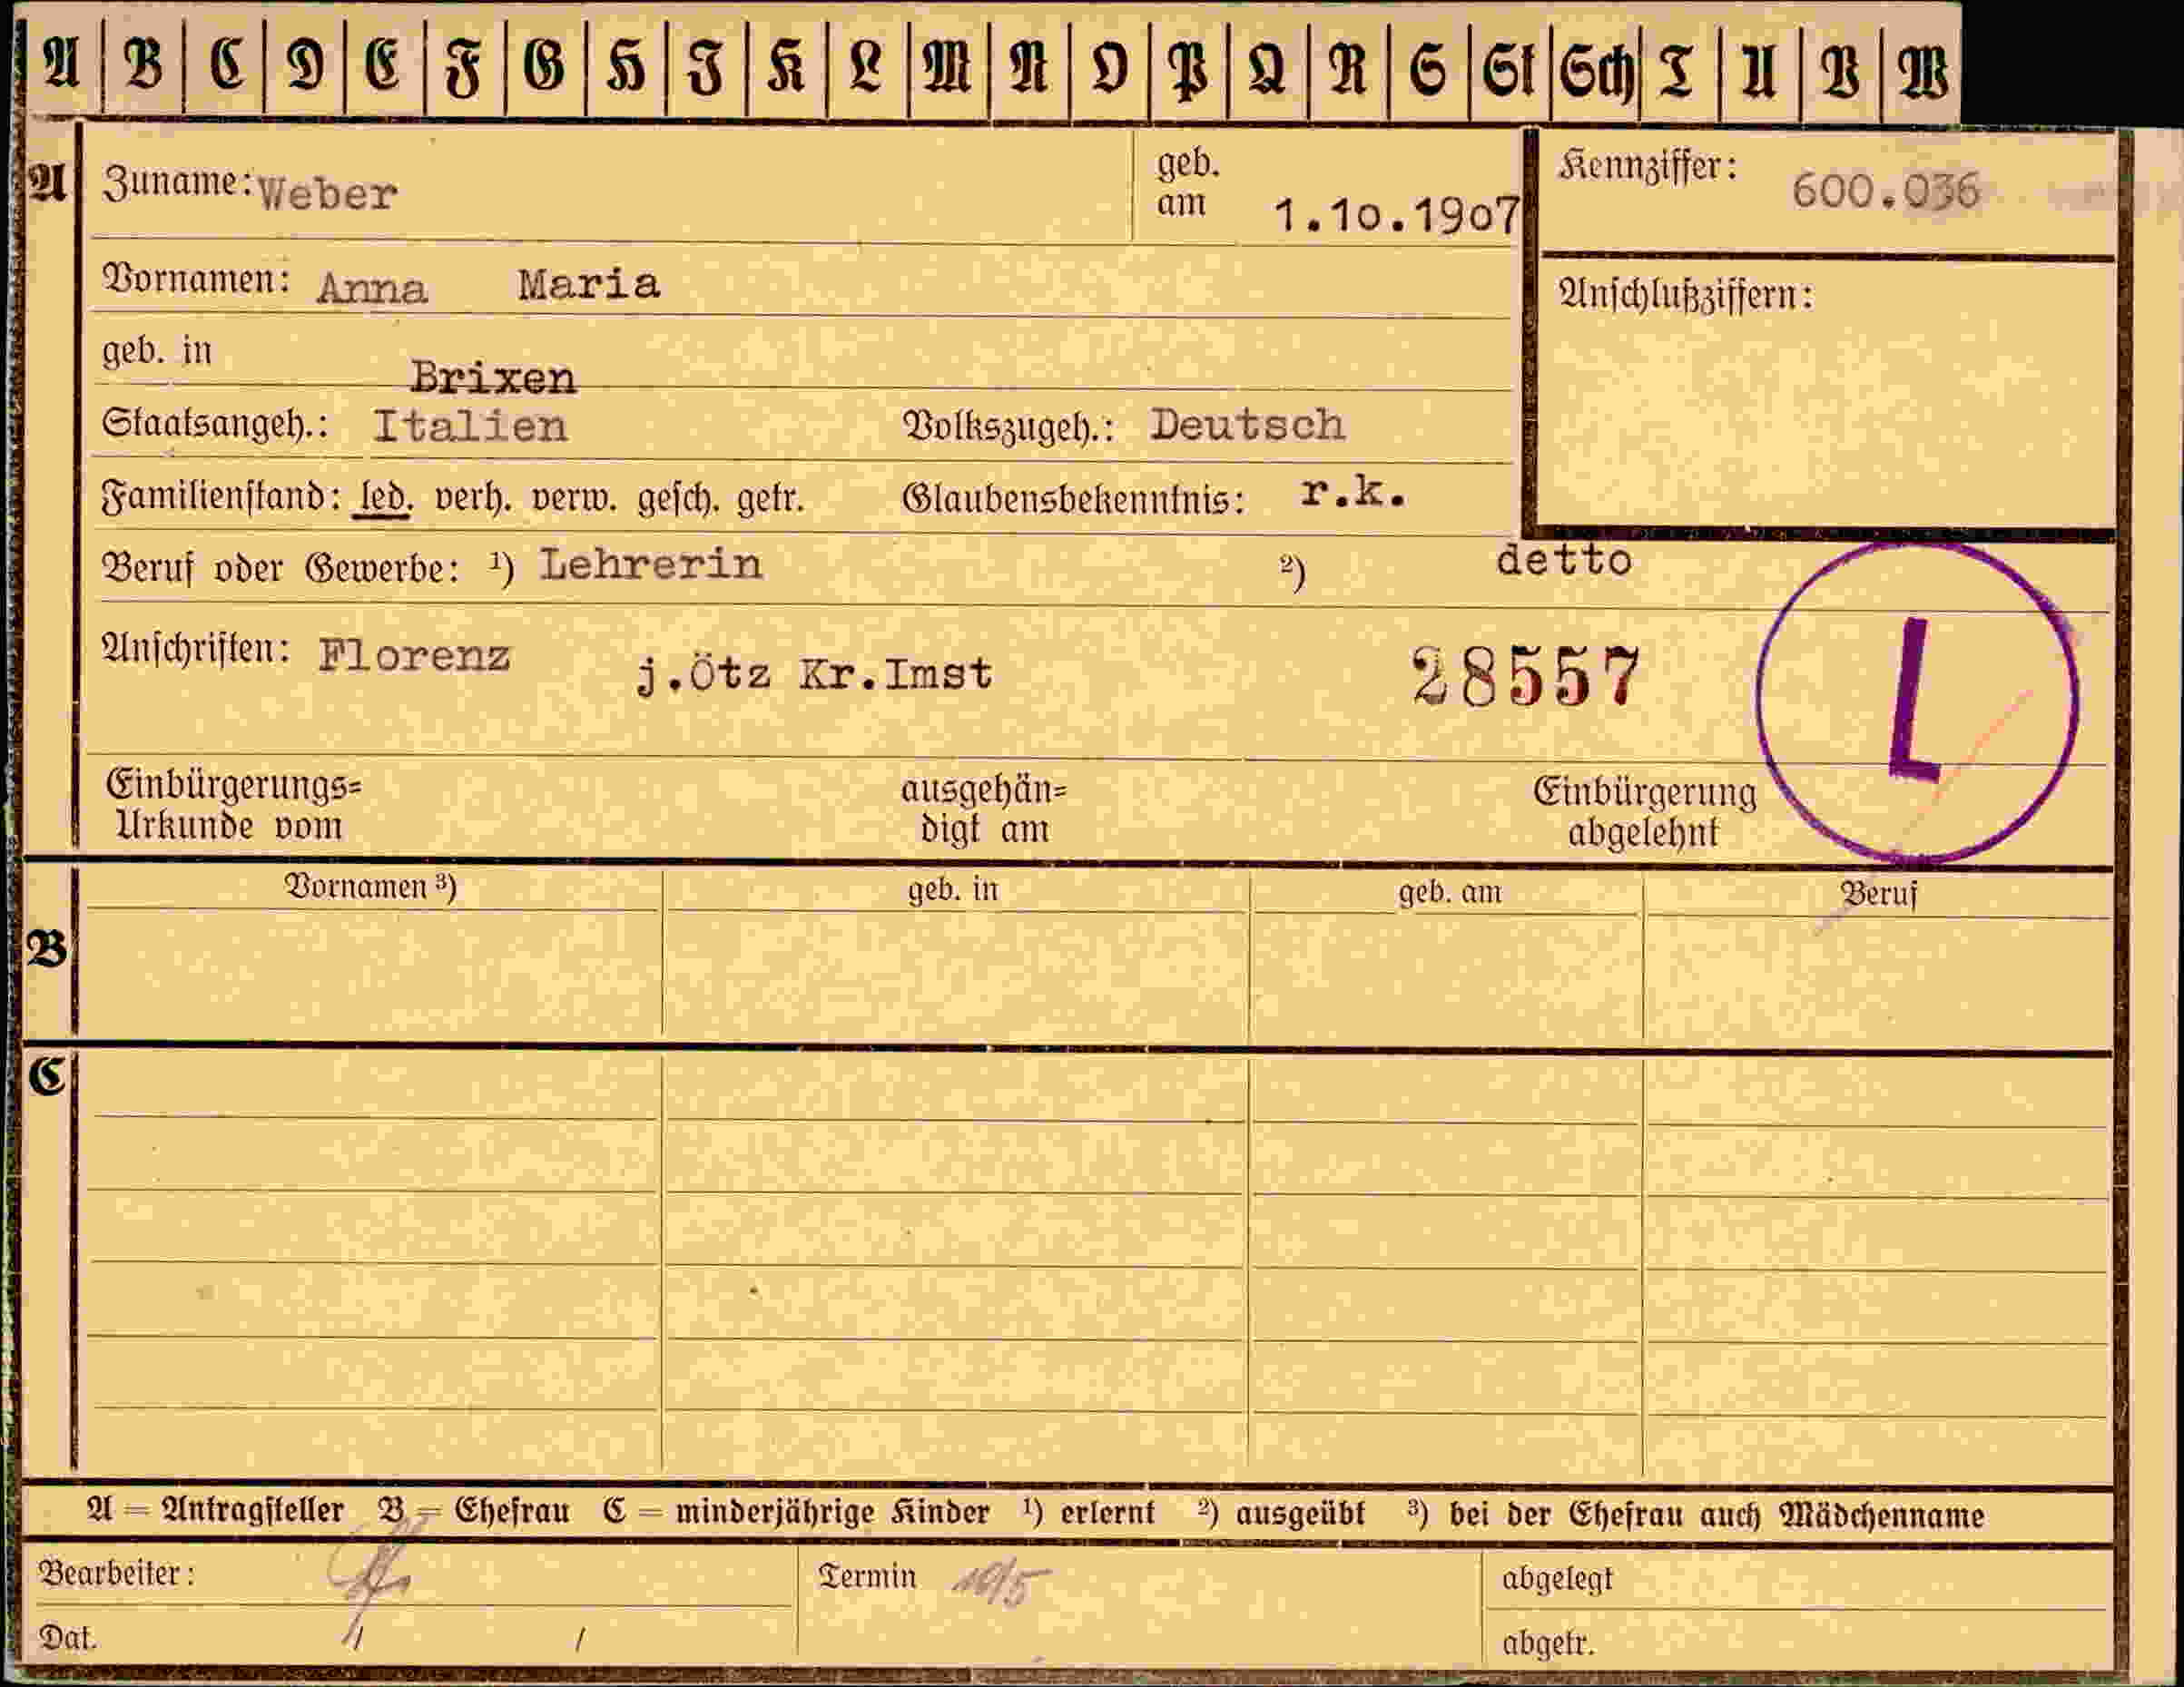 A B C D E F G H I K L M N O P Q R S St Sch T U V W
A Zuname: Weber geb. am 1.10.1907 Kennziffer: 600.036
Vornamen: Anna Maria Anschlußziffern:
geb. in Brixen
Staatsangeh.: Italien Volkszugeh.: Deutsch
Familienstand: led. verh. verw. gesch. getr. Glaubensbekenntnis: r.k.
Beruf oder Gewerbe: ¹) Lehrerin ²) detto
Anschriften: Florenz j.Ötz Kr.Imst 28557 L
Einbürgerungs= ausgehän= Einbürgerung
Urkunde vom digt am abgelehnt
Vornamen ³) geb. in geb. am Beruf
B
C
A = Antragsteller B = Ehefrau C = minderjährige Kinder ¹) erlernt ²) ausgeübt ³) bei der Ehefrau auch Mädchenname
Bearbeiter: Termin 10/5 abgelegt
Dat. / abgetr.